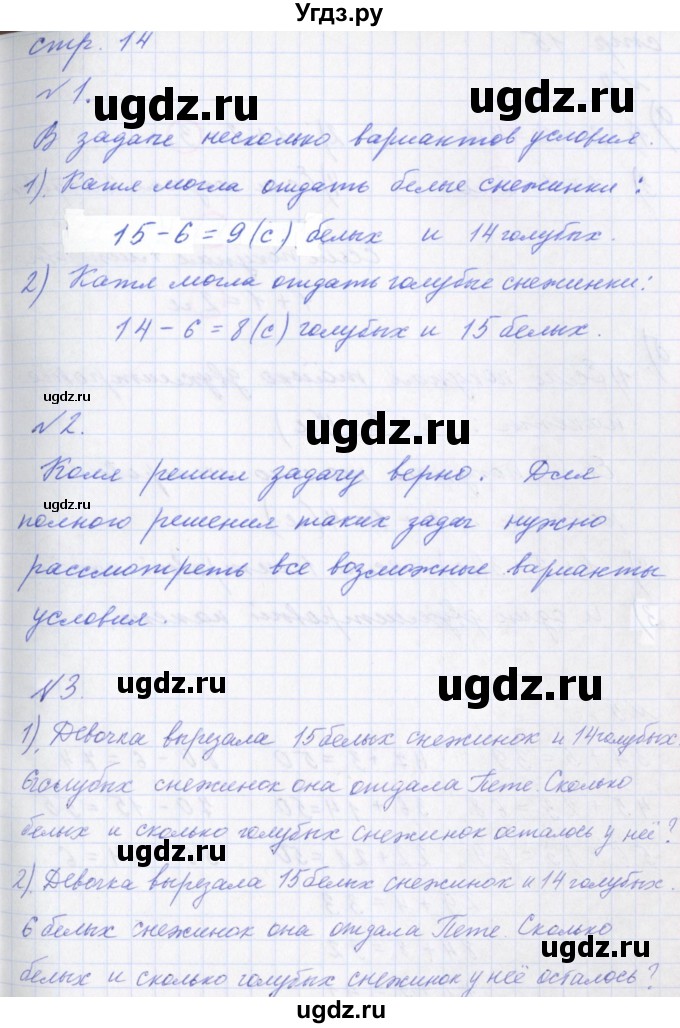 Угдз.ру
стр. 14
№1.
ugdz.ru ugdz.ru
В задаче несколько вариантов условия.
1). Катя могла отдать белые снежинки:
15 - 6 = 9 (с) белых и 14 голубых.
2) Катя могла отдать голубые снежинки:
14 - 6 = 8 (с) голубых и 15 белых.
ugdz.ru
№2.
ugdz.ru
Коля решил задачу верно. Для
ugdz.ru
полного решения таких задач нужно
рассмотреть все возможные варианты
условия.
№3.
ugdz.ru ugdz.ru
1). Девочка вырезала 15 белых снежинок и 14 голубых.
6 голубых снежинок она отдала Пете. Сколько
белых и сколько голубых снежинок осталось у неё?
ugdz.ru
2). Девочка вырезала 15 белых снежинок и 14 голубых.
6 белых снежинок она отдала Пете. Сколько
ugdz.ru
белых и сколько голубых снежинок у неё осталось?
ugdz.ru